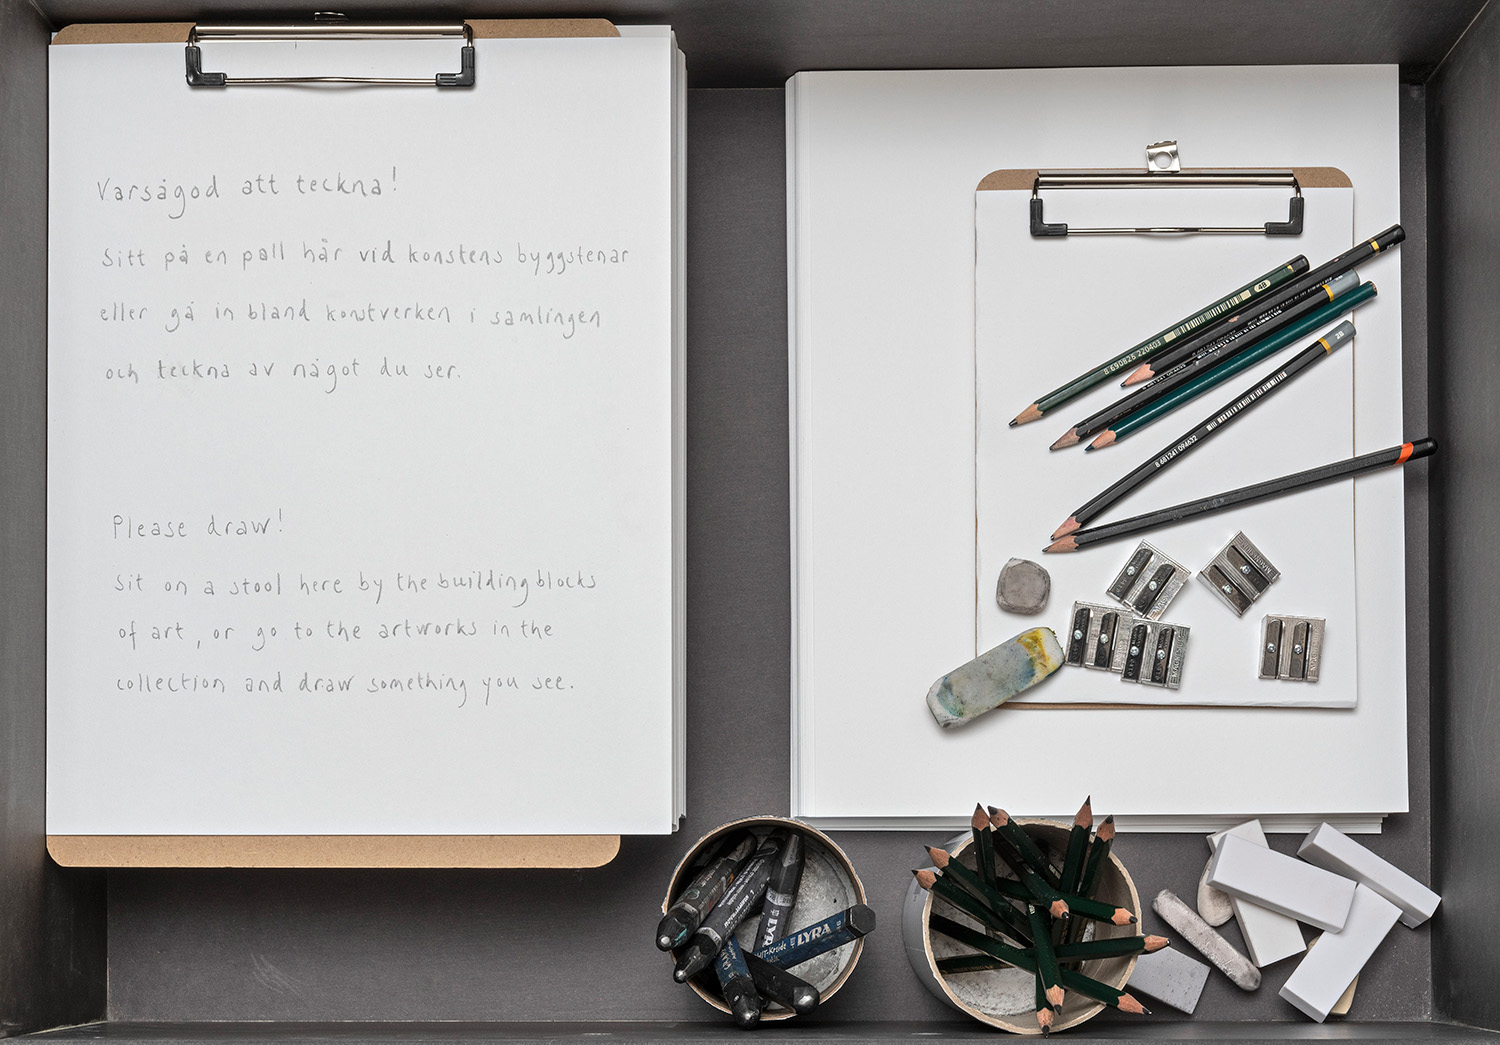 Varsågod att teckna!
Sitt på en pall här vid konstens byggstenar
eller gå in bland konstverken i samlingen
och teckna av något du ser.
Please draw!
Sit on a stool here by the building blocks
of art, or go to the artworks in the
collection and draw something you see.
4B
8 690826 220403
2B
8 681241 094632
LYRA